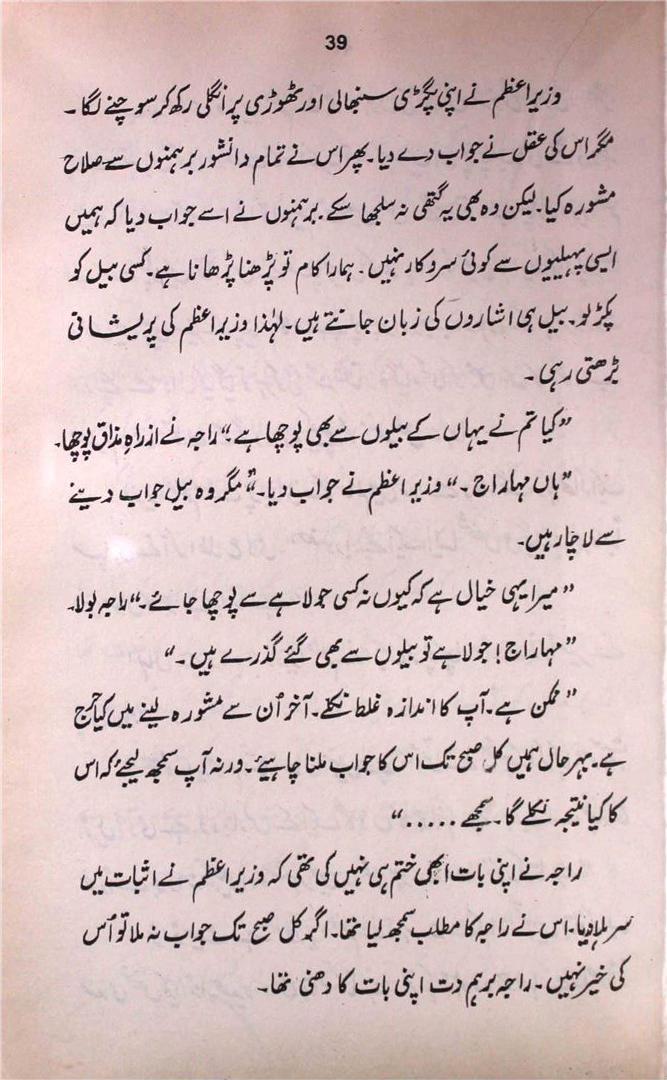 39
وزیراعظم نے اپنی پگڑی سنبھالی اور ٹھوڑی پر انگلی رکھ کر سوچنے لگا ۔
مگر اس کی عقل نے جواب دے دیا۔ پھر اس نے تمام دانشور برہمنوں سے صلاح
مشورہ کیا۔ لیکن وہ بھی یہ گتھی نہ سلجھا سکے۔ برہمنوں نے اسے جواب دیا کہ ہمیں
ایسی پہیلیوں سے کوئی سروکار نہیں۔ ہمارا کام تو پڑھنا پڑھانا ہے۔ کسی بیل کو
پکڑ لو۔ بیل ہی اشاروں کی زبان جانتے ہیں۔ لہٰذا وزیراعظم کی پریشانی
بڑھتی رہی ۔
”کیا تم نے یہاں کے بیلوں سے بھی پوچھا ہے۔“ راجہ نے ازراہِ مذاق پوچھا۔
”ہاں مہاراج ۔“ وزیراعظم نے جواب دیا۔ ”مگر وہ بیل جواب دینے
سے لاچار ہیں۔
”میرا یہی خیال ہے کہ کیوں نہ کسی جولاہے سے پوچھا جائے۔“ راجہ بولا۔
”مہاراج! جولاہے تو بیلوں سے بھی گئے گذرے ہیں ۔“
”ممکن ہے۔ آپ کا اندازہ غلط نکلے۔ آخر اُن سے مشورہ لینے میں کیا حرج
ہے۔ بہرحال ہمیں کل صبح تک اس کا جواب ملنا چاہیئے۔ ورنہ آپ سمجھ لیجئے کہ اس
کا کیا نتیجہ نکلے گا۔ سمجھے .....“
راجہ نے اپنی بات ابھی ختم ہی نہیں کی تھی کہ وزیراعظم نے اثبات میں
سر ہلا دیا۔ اس نے راجہ کا مطلب سمجھ لیا تھا۔ اگر کل صبح تک جواب نہ ملا تو اُس
کی خیر نہیں۔ راجہ برہم دت اپنی بات کا دھنی تھا۔